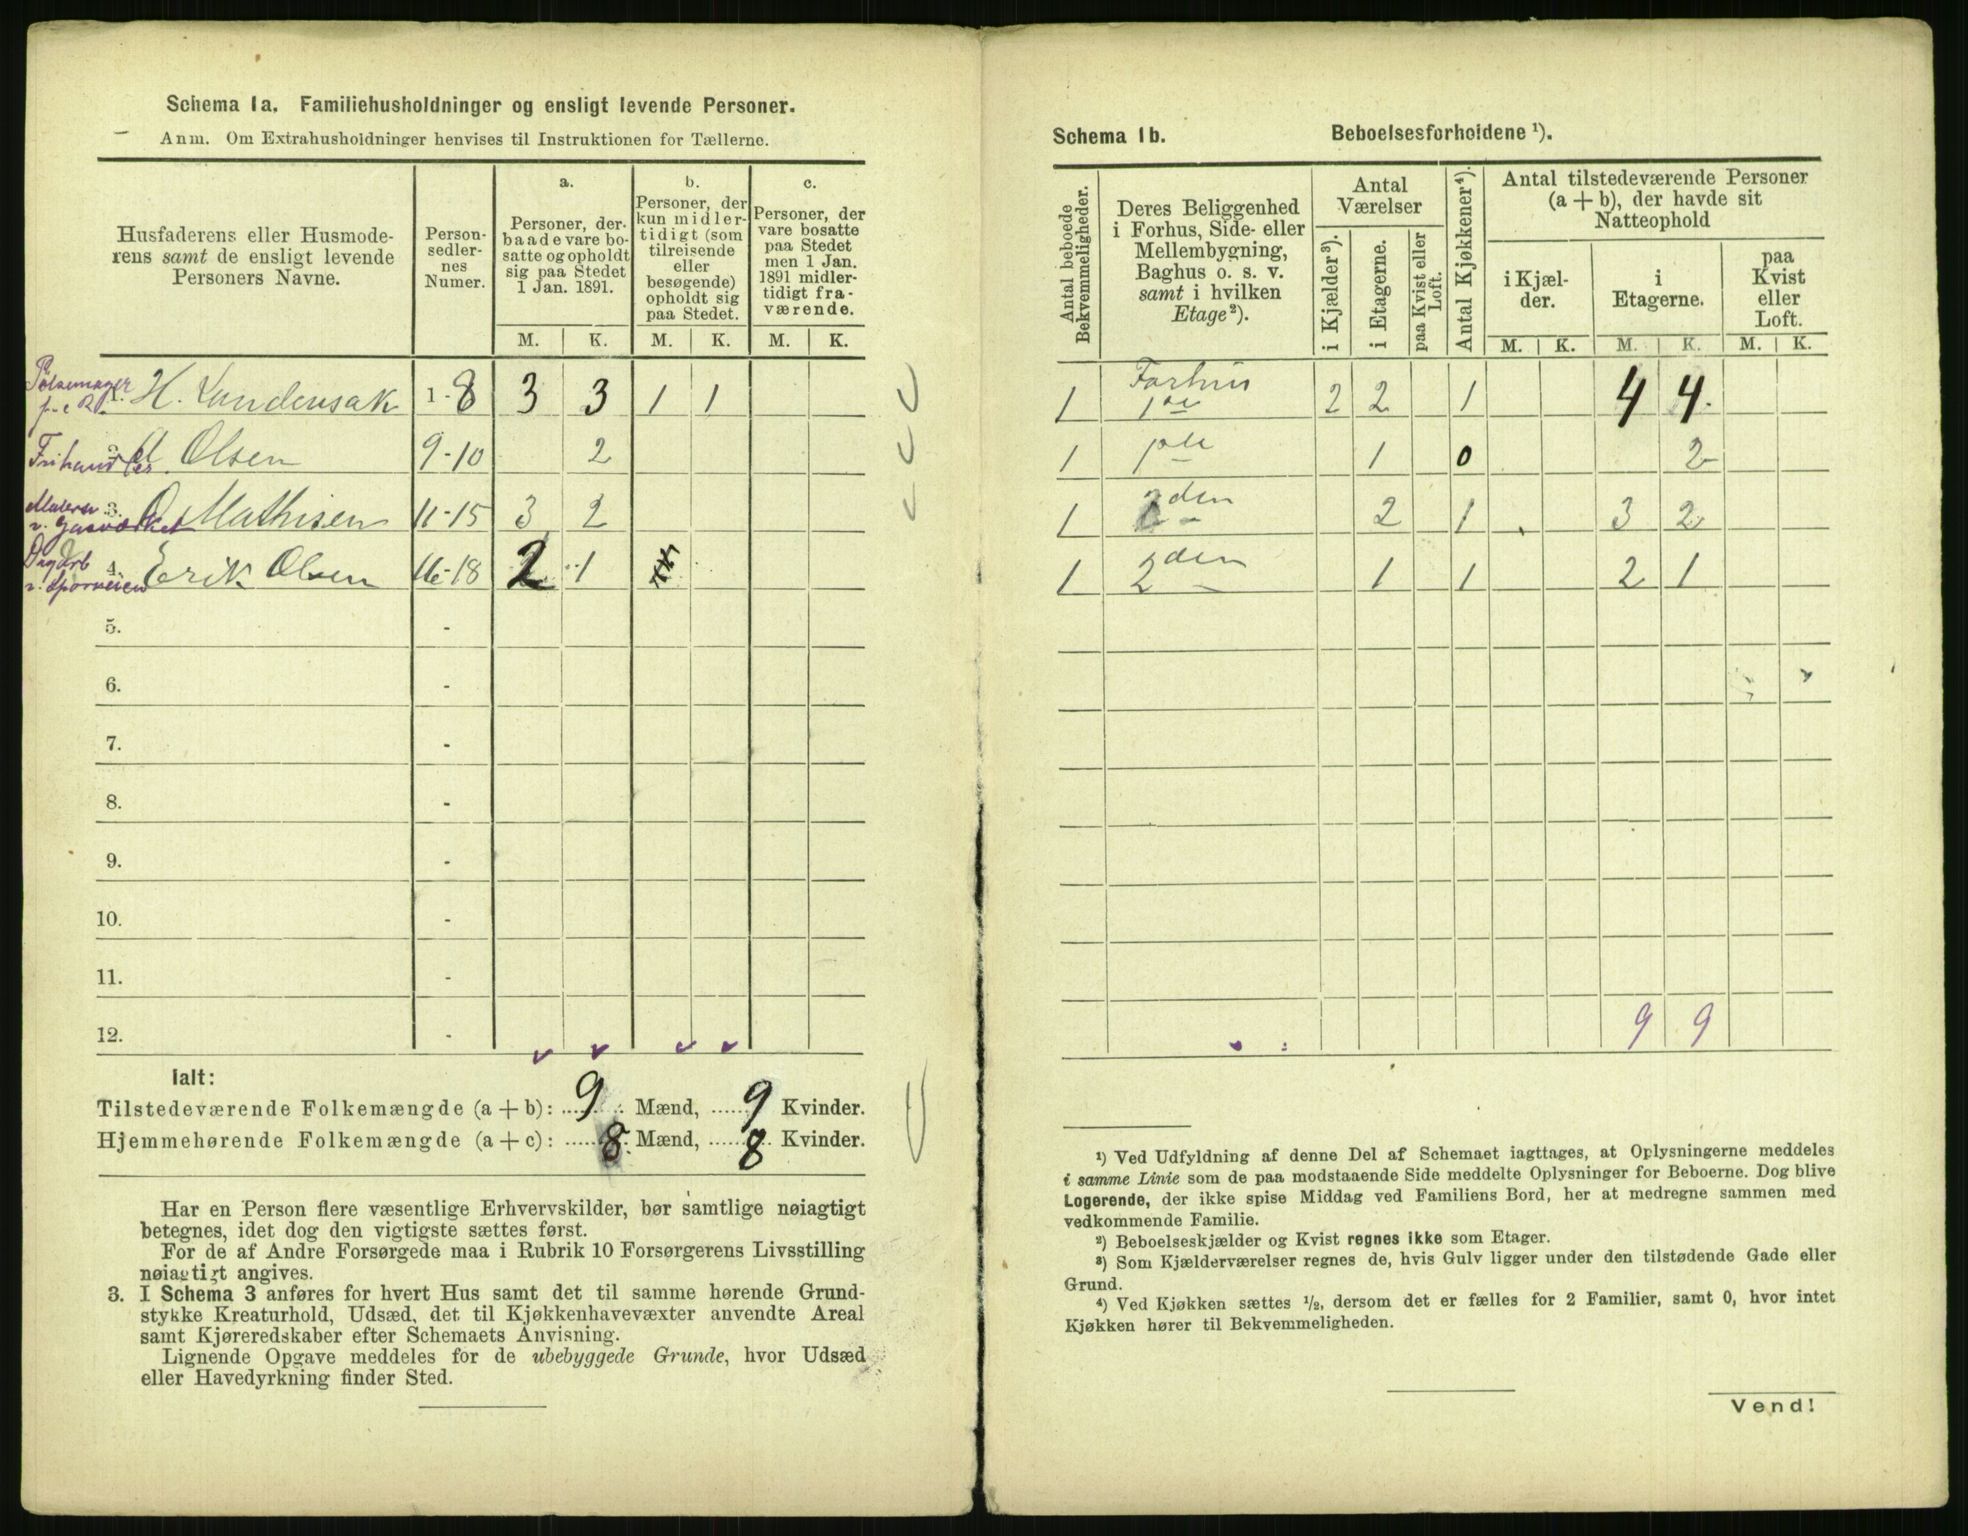 Schema 1a. Familiehusholdninger og ensligt levende Personer.
Anm. Om Extrahusholdninger henvises til Instruktionen for Tællerne.
Husfaderens eller Husmode-
rens samt de ensligt levende
Personers Navne.
Person-
sedler-
nes
Numer.
a.
Personer, der-
baade vare bo-
satte og opholdt
sig paa Stedet
1 Jan. 1891.
b.
Personer, der
kun midler-
tidigt (som
tilreisende
eller
besøgende)
opholdt sig
paa Stedet.
c.
Personer, der
vare bosatte
paa Stedet
men 1 Jan.
1891 midler-
tidigt fra-
værende.
M. K. M. K. M. K.
Pølsemager
1. H. Lundensak 1-8 3 3 1 1
2. Olsen 9-10 2
3. O. Mathisen 11-15 3 2
v. Gasværket
4. Erik Olsen 16-18 2 1
v. Sporveien
5. -
6. -
7. -
8. -
9. -
10. -
11. -
12. -
Ialt:
Tilstedeværende Folkemængde (a + b): 9 Mænd, 9 Kvinder.
Hjemmehørende Folkemængde (a + c): 8 Mænd, 8 Kvinder.
Har en Person flere væsentlige Erhvervskilder, bør samtlige nøiagtigt
betegnes, idet dog den vigtigste sættes først.
For de af Andre Forsørgede maa i Rubrik 10 Forsørgerens Livsstilling
nøiagtigt angives.
3. I Schema 3 anføres for hvert Hus samt det til samme hørende Grund-
stykke Kreaturhold, Udsæd, det til Kjøkkenhavevæxter anvendte Areal
samt Kjøreredskaber efter Schemaets Anvisning.
Lignende Opgave meddeles for de ubebyggede Grunde, hvor Udsæd
eller Havedyrkning finder Sted.
Schema 1b. Beboelsesforholdene ¹).
Antal beboede
Bekvemmeligheder.
Deres Beliggenhed
i Forhus, Side- eller
Mellembygning,
Baghus o. s. v.
samt i hvilken
Etage²).
Antal
Værelser
i Kjælder³).
i Etagerne.
paa Kvist eller
Loft.
Antal Kjøkkener⁴).
Antal tilstedeværende Personer
(a + b), der havde sit
Natteophold
i Kjæl-
der.
i
Etagerne.
paa
Kvist
eller
Loft.
M. K. M. K. M. K.
Forhus
1 1ste 2 2 1 4 4
1 1ste 1 0 2
1 2den 2 1 3 2
1 2den 1 1 2 1
9 9
¹) Ved Udfyldning af denne Del af Schemaet iagttages, at Oplysningerne meddeles
i samme Linie som de paa modstaaende Side meddelte Oplysninger for Beboerne. Dog blive
Logerende, der ikke spise Middag ved Familiens Bord, her at medregne sammen med
vedkommende Familie.
²) Beboelseskjælder og Kvist regnes ikke som Etager.
³) Som Kjælderværelser regnes de, hvis Gulv ligger under den tilstødende Gade eller
Grund.
⁴) Ved Kjøkken sættes ½, dersom det er fælles for 2 Familier, samt 0, hvor intet
Kjøkken hører til Bekvemmeligheden.
Vend!